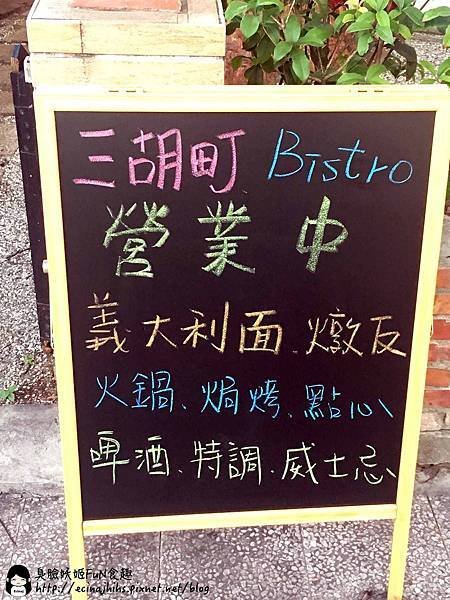 三胡町 Bistro
營業中
義大利面、燉反
火鍋、焗烤、點心
啤酒、特調、威士忌
臭臉妖姬FuN食趣
http://ecinajhihs.pixnet.net/blog